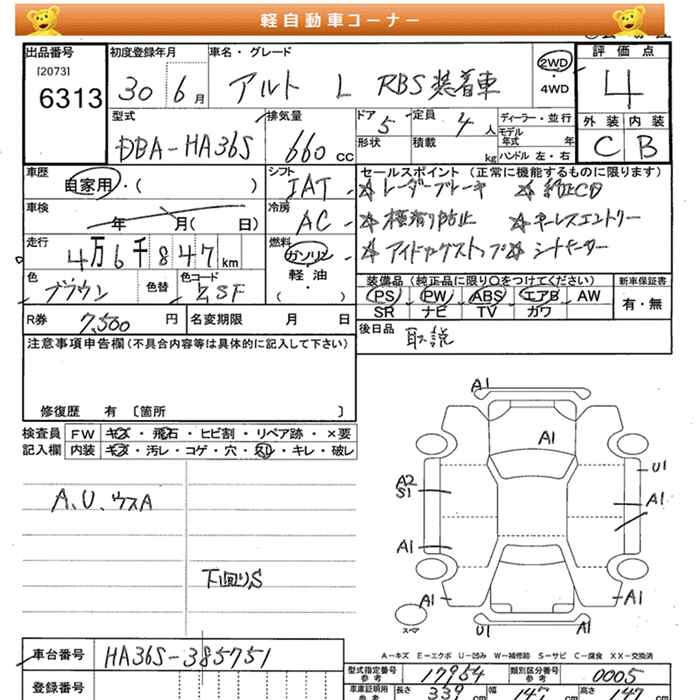 軽自動車コーナー
出品番号
[2073]
6313
初度登録年月
30 6月
車名・グレード
アルト L RBS装着車
2WD
・4WD
評価点
4
外装 内装
C B
型式
DBA-HA36S
排気量
660 cc
ドア
5
形状
定員
4人
積載
kg
ディーラー・並行
モデル年式 年
ハンドル 左・右
車歴
自家用・( )
車検
年 月( 日)
走行
4万6千847km
色
ブラウン
色替
色コード
ZSF
シフト
IAT
冷房
AC
燃料
ガソリン
・軽油・
( )
セールスポイント(正常に機能するものに限ります)
☆レーダーブレーキ ☆純正CD
☆横滑り防止 ☆キーレスエントリー
☆アイドリングストップ ☆シートヒーター
装備品(純正品に限り○をつけてください)
PS PW ABS エアB AW
SR ナビ TV カワ
新車保証書
有・無
R券 7,580 円
名変期限 月 日
後日品
取説
注意事項申告欄(不具合内容等は具体的に記入して下さい)
修復歴 有〔箇所 〕
検査員記入欄
FW キズ・飛石・ヒビ割・リペア跡・×要
内装 キズ・汚レ・コゲ・穴・スレ・キレ・破レ
A、U、ウスA
下回りS
A1
A1
U1
A2
S1
A1
A1
A1
A1
スペア
U1
A1
A-キズ E-エクボ U-凹み W-補修跡 S-サビ C-腐食 XX-交換済
車台番号 HA36S-385751
登録番号
型式指定番号 参考 17954
類別区分番号 参考 0005
車庫証明用 参考 長さ 339 幅 147 高さ 147